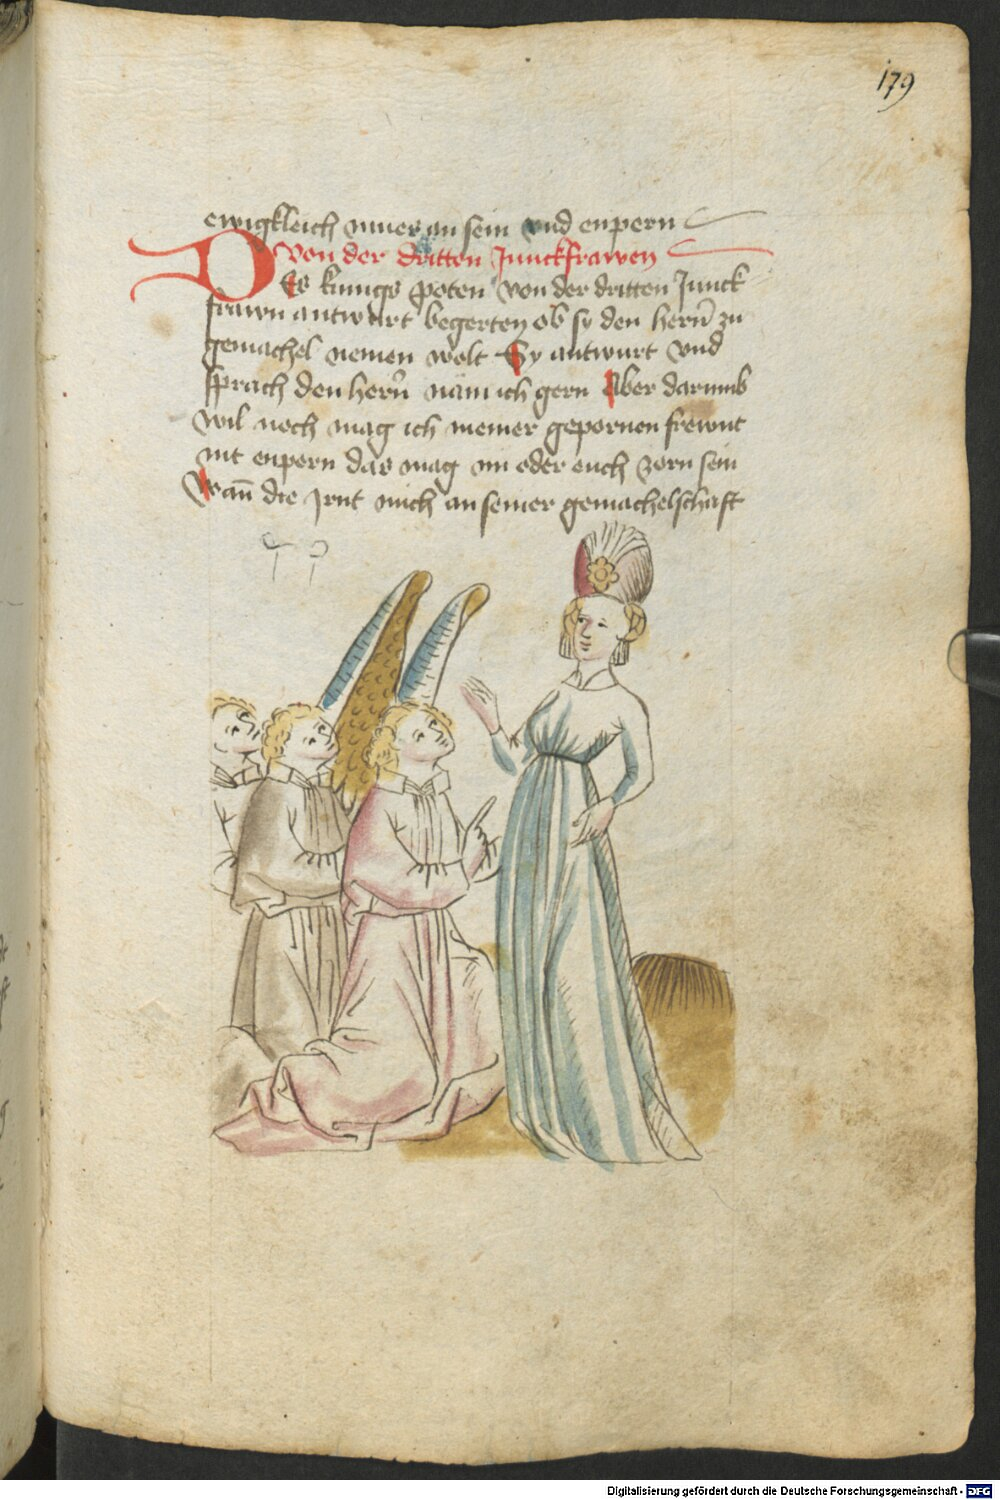 179
ewigkleich mues an sein vnd enpern
Von der dritten Junckfrawen
Des kunigs poten von der dritten Junck
frawn antwurt begerten ob sy den hern̄ zu
gemachel nemen wolt Sy antwurt vnd
sprach den hern̄ näm ich gern Aber darumb
wil noch mag ich meiner gepornen frewnt
nit enpern das mag im oder euch zorn sein
Wan̄ die Irnt mich an seiner gemachelschaft
Digitalisierung gefördert durch die Deutsche Forschungsgemeinschaft - DFG